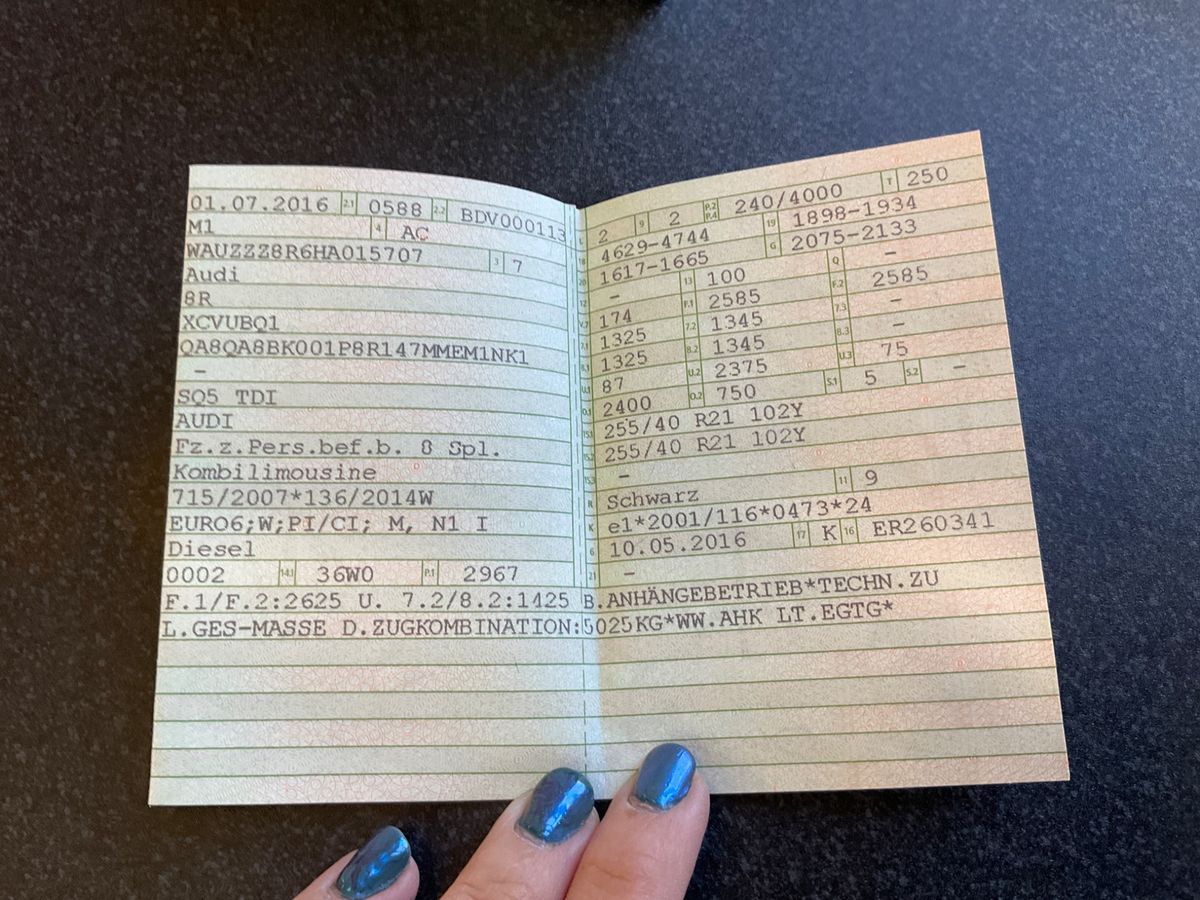 01.07.2016 2.1 0588 2.2 BDV000113
M1 4 AC
WAUZZZ8R6HA015707 3 7
Audi
8R
XCVUBQ1
QA8QA8BK001P8R147MMEM1NK1
–
SQ5 TDI
AUDI
Fz.z.Pers.bef.b. 8 Spl.
Kombilimousine
715/2007*136/2014W
EURO6;W;PI/CI; M, N1 I
Diesel
0002 14.1 36W0 P.1 2967
L 2 9 2 P.2 P.4 240/4000 T 250
18 4629-4744 19 1898-1934
20 1617-1665 G 2075-2133
12 – 13 100 Q –
V.7 174 F.1 2585 F.2 2585
7.1 1325 7.2 1345 7.3 –
8.1 1325 8.2 1345 8.3 –
U.1 87 U.2 2375 U.3 75
O.1 2400 O.2 750 S.1 5 S.2 –
15.1 255/40 R21 102Y
15.2 255/40 R21 102Y
15.3 –
R Schwarz 11 9
K e1*2001/116*0473*24
6 10.05.2016 17 K 16 ER260341
21 –
F.1/F.2:2625 U. 7.2/8.2:1425 B.ANHÄNGEBETRIEB*TECHN.ZU
L.GES-MASSE D.ZUGKOMBINATION:5025KG*WW.AHK LT.EGTG*